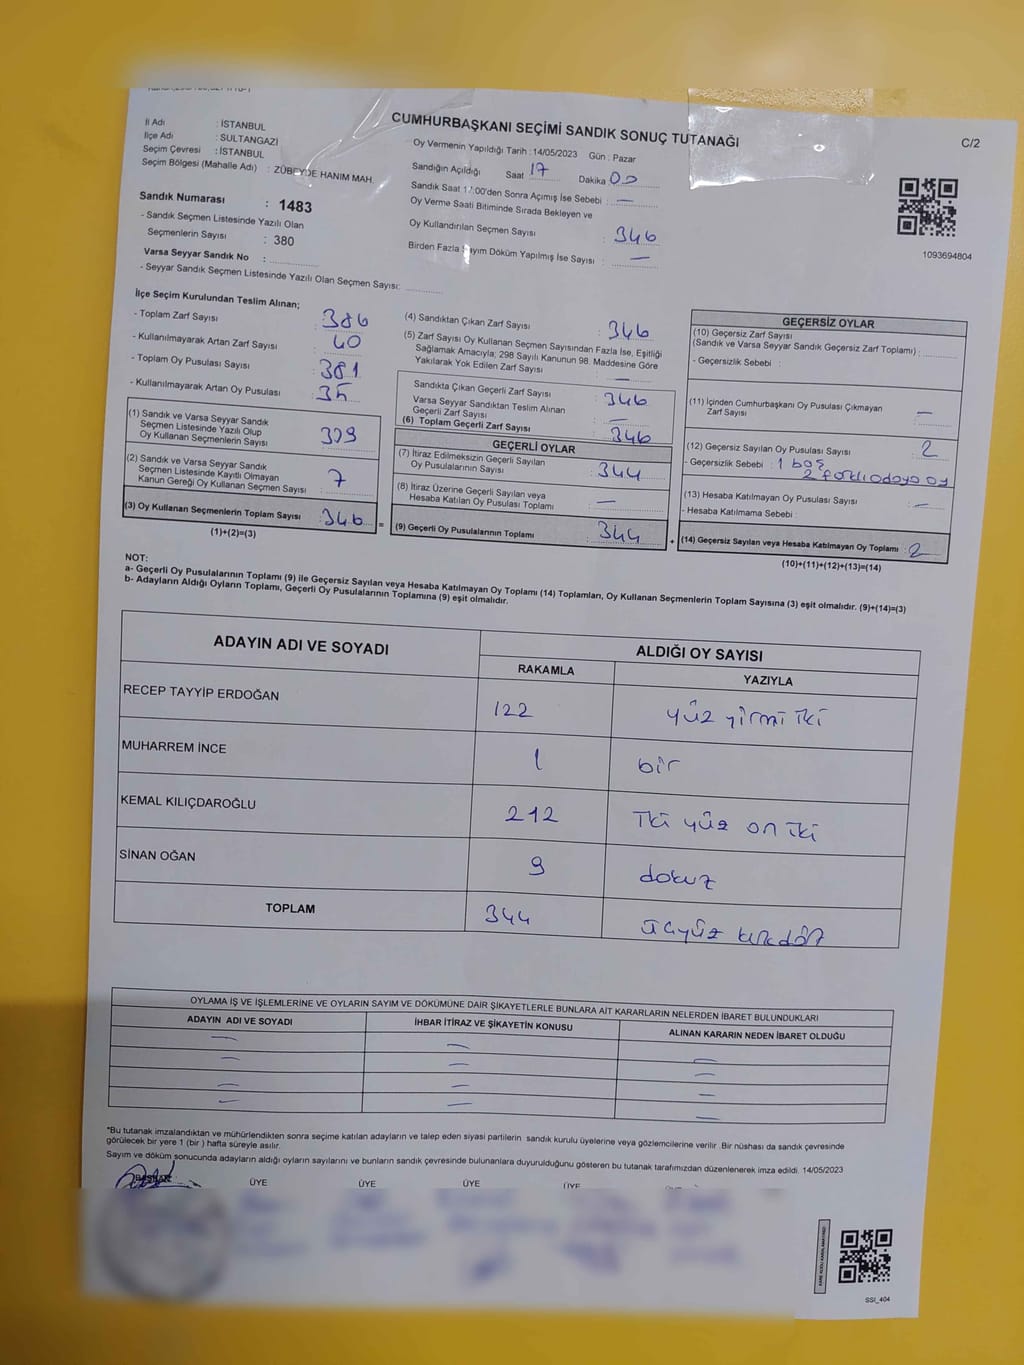 CUMHURBAŞKANI SEÇİMİ SANDIK SONUÇ TUTANAĞI
C/2
İl Adı : İSTANBUL
İlçe Adı : SULTANGAZİ
Seçim Çevresi : İSTANBUL
Seçim Bölgesi (Mahalle Adı) : ZÜBEYDE HANIM MAH.
Sandık Numarası : 1483
- Sandık Seçmen Listesinde Yazılı Olan
Seçmenlerin Sayısı : 380
Varsa Seyyar Sandık No :
- Seyyar Sandık Seçmen Listesinde Yazılı Olan Seçmen Sayısı:
Oy Vermenin Yapıldığı Tarih : 14/05/2023 Gün : Pazar
Sandığın Açıldığı Saat 17 Dakika 00
Sandık Saat 17:00'den Sonra Açımış İse Sebebi : —
Oy Verme Saati Bitiminde Sırada Bekleyen ve
Oy Kullandırılan Seçmen Sayısı : 346
Birden Fazla Sayım Döküm Yapılmış İse Sayısı : —
1093694804
İlçe Seçim Kurulundan Teslim Alınan;
- Toplam Zarf Sayısı : 386
- Kullanılmayarak Artan Zarf Sayısı : 40
- Toplam Oy Pusulası Sayısı : 381
- Kullanılmayarak Artan Oy Pusulası : 35
(1) Sandık ve Varsa Seyyar Sandık
Seçmen Listesinde Yazılı Olup
Oy Kullanan Seçmenlerin Sayısı : 339
(2) Sandık ve Varsa Seyyar Sandık
Seçmen Listesinde Kayıtlı Olmayan
Kanun Gereği Oy Kullanan Seçmen Sayısı : 7
(3) Oy Kullanan Seçmenlerin Toplam Sayısı : 346
(1)+(2)=(3)
=
(4) Sandıktan Çıkan Zarf Sayısı : 346
(5) Zarf Sayısı Oy Kullanan Seçmen Sayısından Fazla İse, Eşitliği
Sağlamak Amacıyla; 298 Sayılı Kanunun 98. Maddesine Göre
Yakılarak Yok Edilen Zarf Sayısı : —
Sandıkta Çıkan Geçerli Zarf Sayısı : 346
Varsa Seyyar Sandıktan Teslim Alınan
Geçerli Zarf Sayısı : —
(6) Toplam Geçerli Zarf Sayısı : 346
GEÇERLİ OYLAR
(7) İtiraz Edilmeksizin Geçerli Sayılan
Oy Pusulalarının Sayısı : 344
(8) İtiraz Üzerine Geçerli Sayılan veya
Hesaba Katılan Oy Pusulası Toplamı : —
(9) Geçerli Oy Pusulalarının Toplamı : 344
+
GEÇERSİZ OYLAR
(10) Geçersiz Zarf Sayısı
(Sandık ve Varsa Seyyar Sandık Geçersiz Zarf Toplamı) :
- Geçersizlik Sebebi :
(11) İçinden Cumhurbaşkanı Oy Pusulası Çıkmayan
Zarf Sayısı : —
(12) Geçersiz Sayılan Oy Pusulası Sayısı : 2
- Geçersizlik Sebebi : 1 boş
2 farklı adaya oy
(13) Hesaba Katılmayan Oy Pusulası Sayısı : —
- Hesaba Katılmama Sebebi :
(14) Geçersiz Sayılan veya Hesaba Katılmayan Oy Toplamı : 2
(10)+(11)+(12)+(13)=(14)
NOT:
a- Geçerli Oy Pusulalarının Toplamı (9) ile Geçersiz Sayılan veya Hesaba Katılmayan Oy Toplamı (14) Toplamları, Oy Kullanan Seçmenlerin Toplam Sayısına (3) eşit olmalıdır. (9)+(14)=(3)
b- Adayların Aldığı Oyların Toplamı, Geçerli Oy Pusulalarının Toplamına (9) eşit olmalıdır.
ADAYIN ADI VE SOYADI ALDIĞI OY SAYISI
RAKAMLA YAZIYLA
RECEP TAYYİP ERDOĞAN 122 yüz yirmi iki
MUHARREM İNCE 1 bir
KEMAL KILIÇDAROĞLU 212 iki yüz on iki
SİNAN OĞAN 9 dokuz
TOPLAM 344 üçyüz kırkdört
OYLAMA İŞ VE İŞLEMLERİNE VE OYLARIN SAYIM VE DÖKÜMÜNE DAİR ŞİKAYETLERLE BUNLARA AİT KARARLARIN NELERDEN İBARET BULUNDUKLARI
ADAYIN ADI VE SOYADI İHBAR İTİRAZ VE ŞİKAYETİN KONUSU ALINAN KARARIN NEDEN İBARET OLDUĞU
— — —
— — —
— — —
— — —
*Bu tutanak imzalandıktan ve mühürlendikten sonra seçime katılan adayların ve talep eden siyasi partilerin sandık kurulu üyelerine veya gözlemcilerine verilir. Bir nüshası da sandık çevresinde
görülecek bir yere 1 (bir) hafta süreyle asılır.
Sayım ve döküm sonucunda adayların aldığı oyların sayılarını ve bunların sandık çevresinde bulunanlara duyurulduğunu gösteren bu tutanak tarafımızdan düzenlenerek imza edildi. 14/05/2023
BAŞKAN ÜYE ÜYE ÜYE ÜYE
SSİ_404